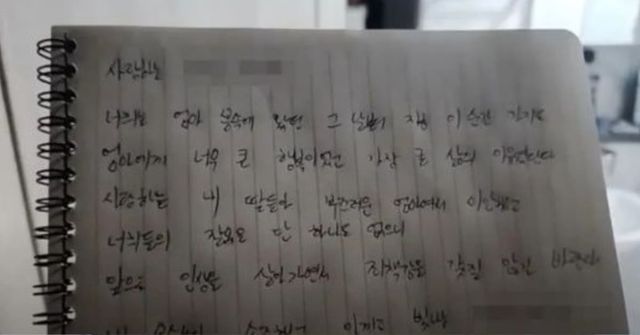 사랑하는
너희는 엄마 몸속에 왔던 그 날부터 지금 이 순간 까지도
엄마에게 너무 큰 행복이었고 가장 큰 삶의 이유였단다
사랑하는 내 딸들아 부끄러운 엄마여서 미안하고
너희들의 잘못은 단 하나도 없으니
앞으로 인생을 살아가면서 죄책감을 갖질 않길 바란다
아끼고